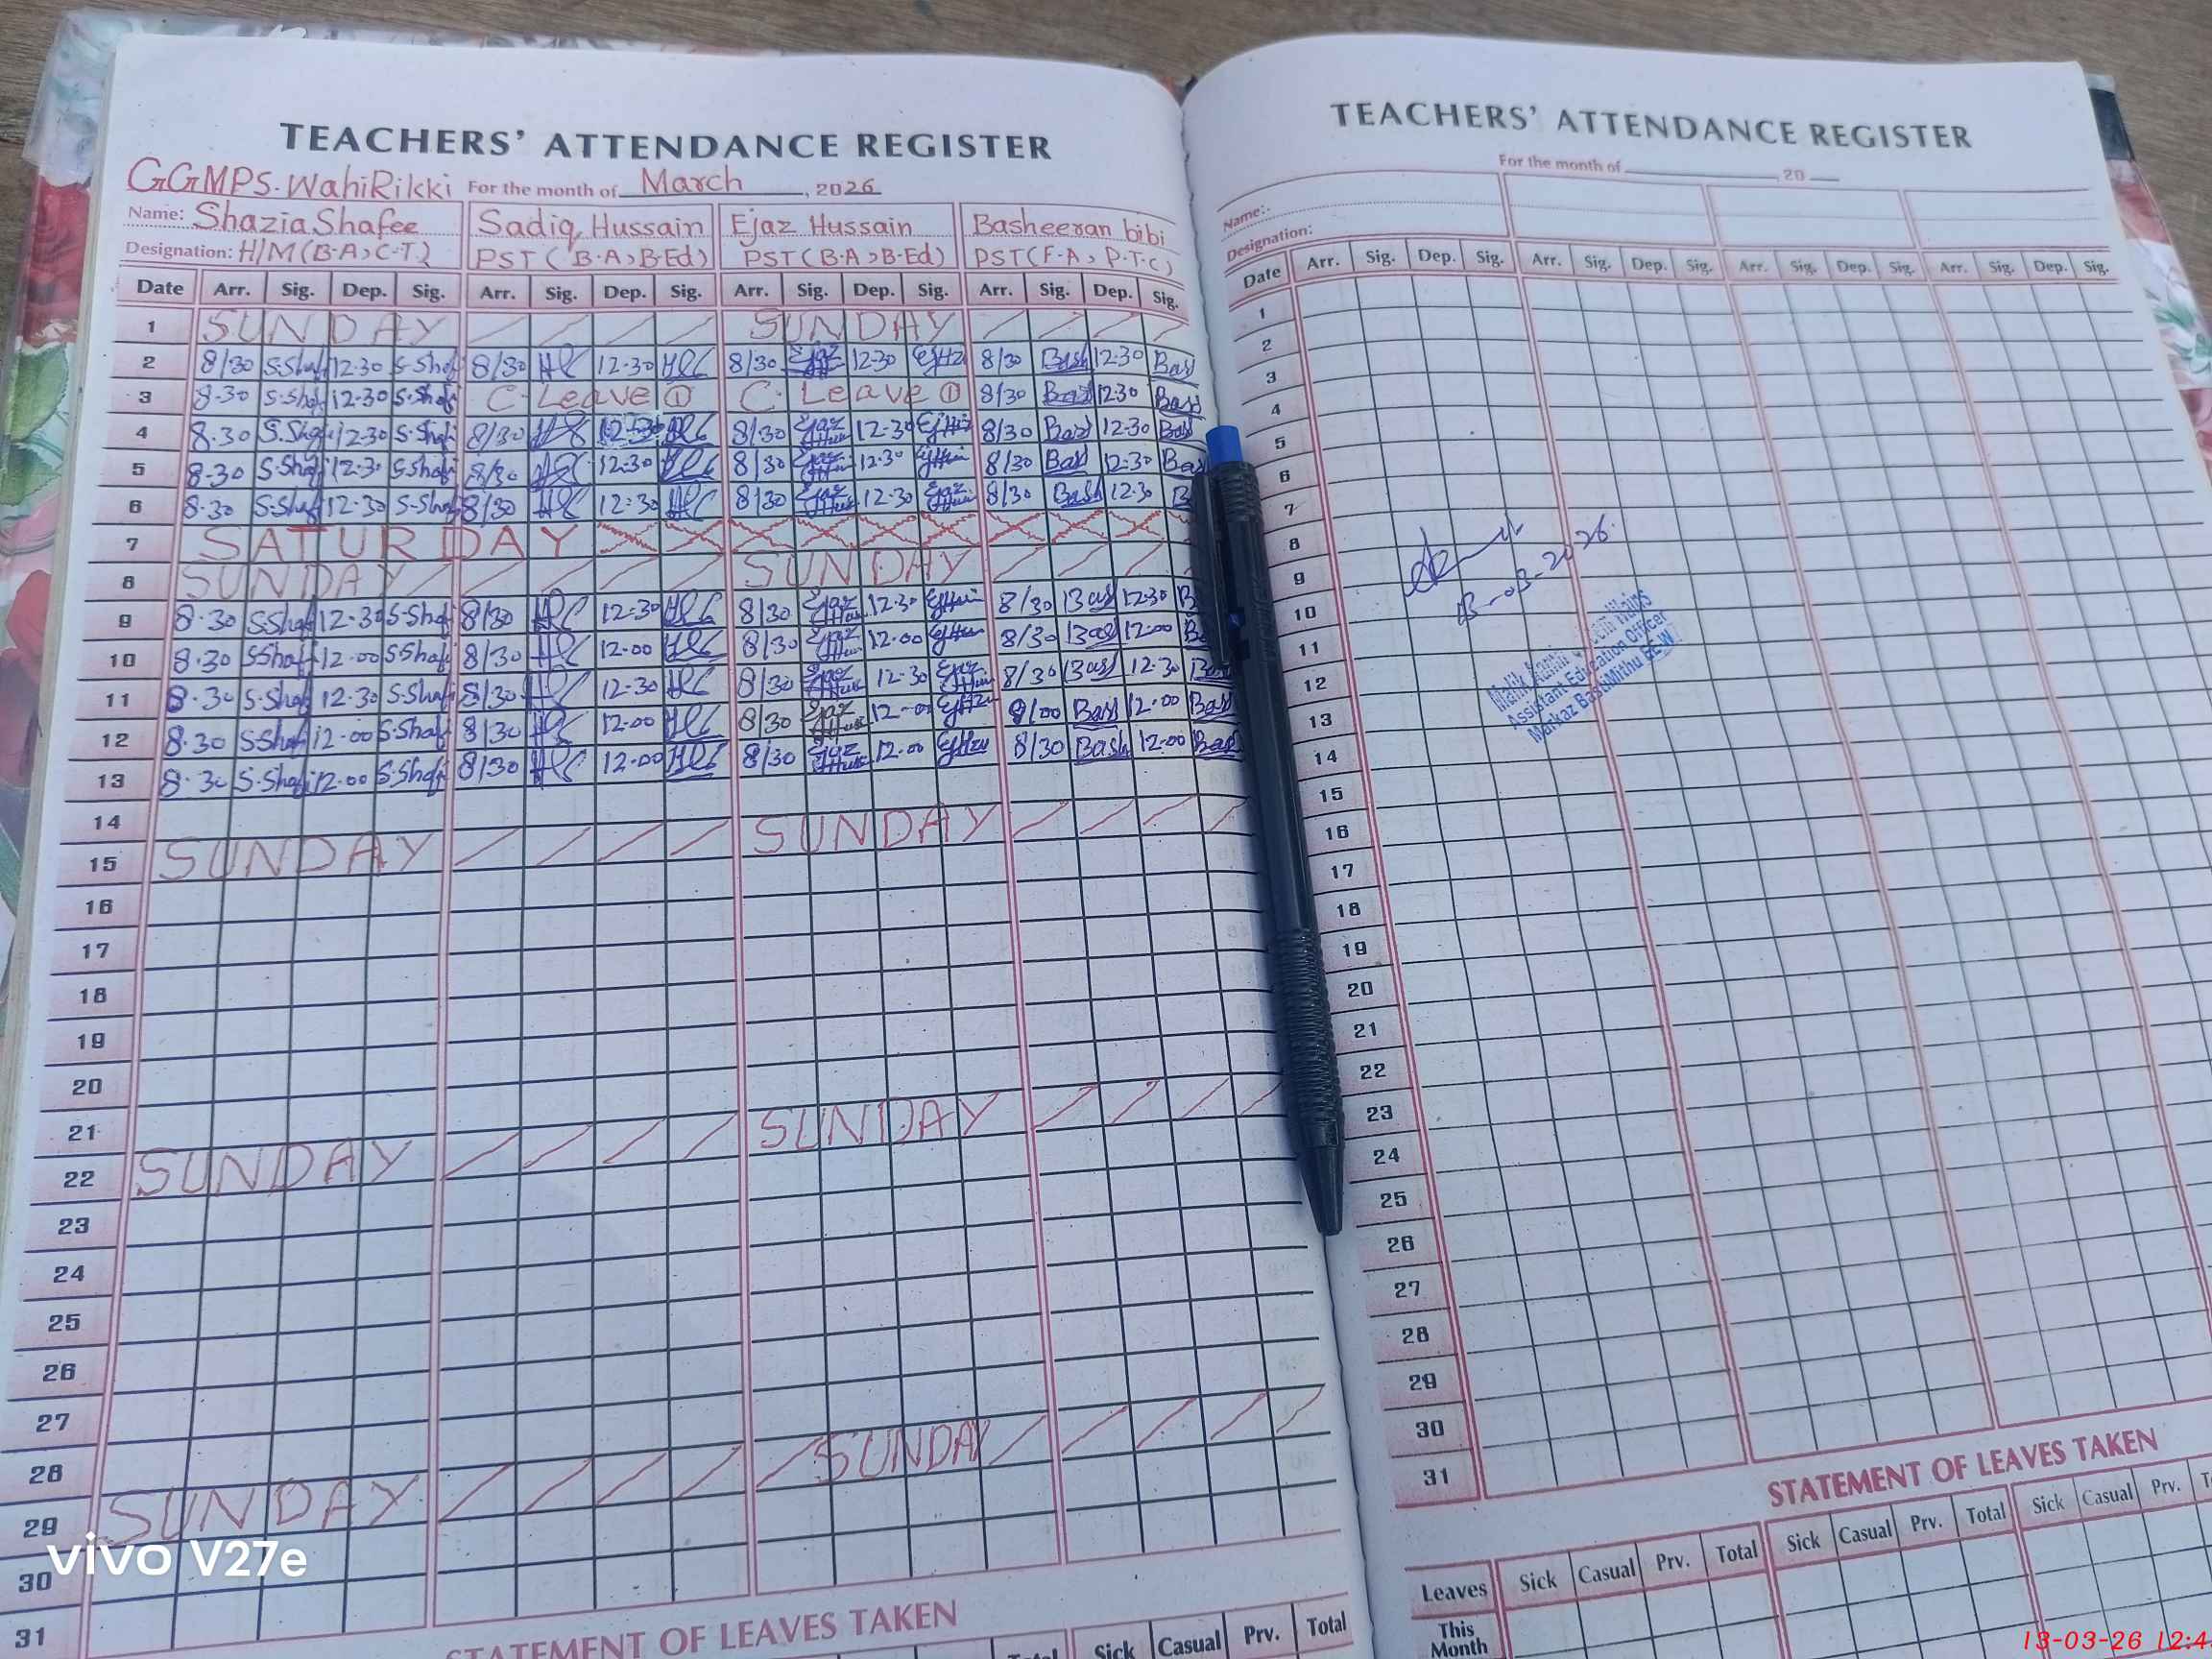 TEACHERS' ATTENDANCE REGISTER
GGMPS. Wahi Rikki For the month of March, 2026
Name: Shazia Shafee Sadiq Hussain Ejaz Hussain Basheeran bibi
Designation: H/M (B.A, C.T.) PST (B.A, B.Ed) PST (B.A, B.Ed) PST (F.A, P.T.C)
Date Arr. Sig. Dep. Sig. Arr. Sig. Dep. Sig. Arr. Sig. Dep. Sig. Arr. Sig. Dep. Sig.
1 SUNDAY SUNDAY
2 8/30 S.Shaf 12.30 S.Shaf 8/30 12.30 8/30 Ejaz 12.30 8/30 Bash 12.30 Bas
3 8.30 S.Shaf 12.30 S.Shaf C. Leave ① C. Leave ① 8/30 Bas 12.30 Bas
4 8.30 S.Shaf 12.30 S.Shafi 8/30 12.30 8/30 Ejaz 12.30 8/30 Bas 12.30 Bas
5 8.30 S.Shaf 12.30 S.Shafi 8/30 12.30 8/30 Ejaz 12.30 8/30 Bas 12.30 Bas
6 8.30 S.Shaf 12.30 S.Shaf 8/30 12:30 8/30 Ejaz 12.30 Ejaz 8/30 Bash 12.30 B
7 SATURDAY
8 SUNDAY SUNDAY
9 8.30 S.Shaf 12.30 S.Shaf 8/30 12.30 8/30 Ejaz 12.30 8/30 Bas 12.30 B
10 8.30 S.Shaf 12.00 S.Shafi 8/30 12.00 8/30 Ejaz 12.00 8/30 Bas 12.00 Ba
11 8.30 S.Shaf 12.30 S.Shafi 8/30 12.30 8/30 Ejaz 12.30 Ejaz 8/30 Bas 12.30 Bas
12 8.30 S.Shaf 12.00 S.Shaf 8/30 12.00 8/30 Ejaz 12.00 9/00 Bas 12.00 Bas
13 8.30 S.Shafi 12.00 S.Shafi 8/30 12.00 8/30 Ejaz 12.00 8/30 Bash 12.00 Bas
14
15 SUNDAY SUNDAY
16
17
18
19
20
21
22 SUNDAY SUNDAY
23
24
25
26
27
28
29 SUNDAY SUNDAY
30
31
STATEMENT OF LEAVES TAKEN
Total Sick Casual Prv. Total
vivo V27e
TEACHERS' ATTENDANCE REGISTER
For the month of , 20
Name:-
Designation:
Date Arr. Sig. Dep. Sig. Arr. Sig. Dep. Sig. Arr. Sig. Dep. Sig. Arr. Sig. Dep. Sig.
1
2
3
4
5
6
7
8
9
10
11
12
13
14
15
16
17
18
19
20
21
22
23
24
25
26
27
28
29
30
31
13-03-2026
Malik
Assistant Education Officer
Markaz Basti Mithu
STATEMENT OF LEAVES TAKEN
Leaves Sick Casual Prv. Total Sick Casual Prv. Total Sick Casual Prv.
This
Month
13-03-26 12:4